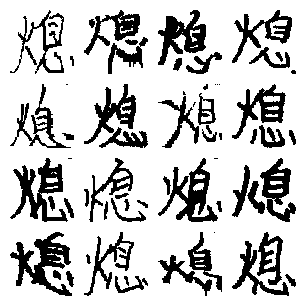 熄熄熄熄
熄熄熄熄
熄熄熄熄
熄熄熄熄